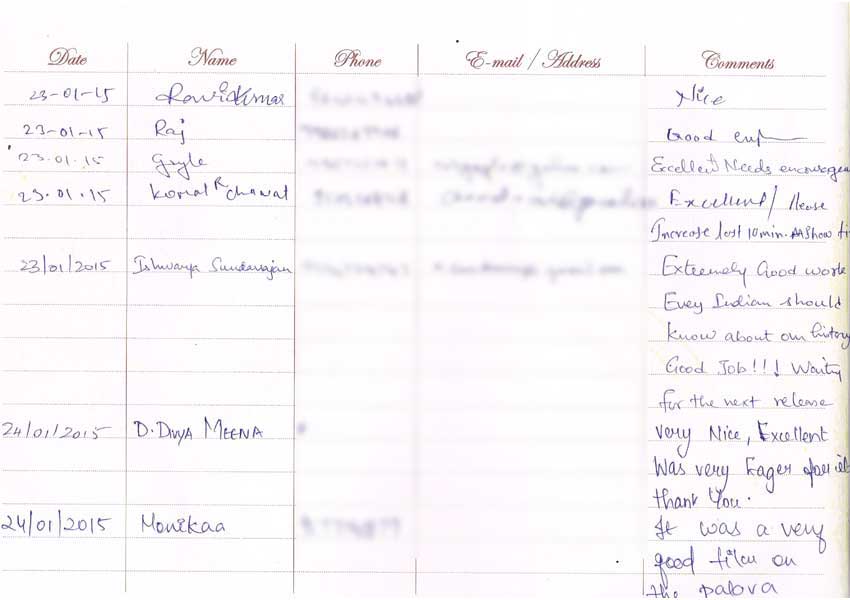 Date Name Phone E-mail / Address Comments
23-01-15 Ravikumar Nice
23-01-15 Raj Good
23.01.15 Gayle Excellent Needs
23.01.15 Komal R Chawat Excellent / Please
Increase last 10 min. Show
23/01/2015 Ishwarya Sundarajan Extremely Good work
Evey Indian should
know about our history
Good Job!!! Waiting
for the next release
24/01/2015 D. Divya MEENA Very Nice, Excellent
Was very Eager
thank You.
24/01/2015 Monikaa It was a very
good film on
the